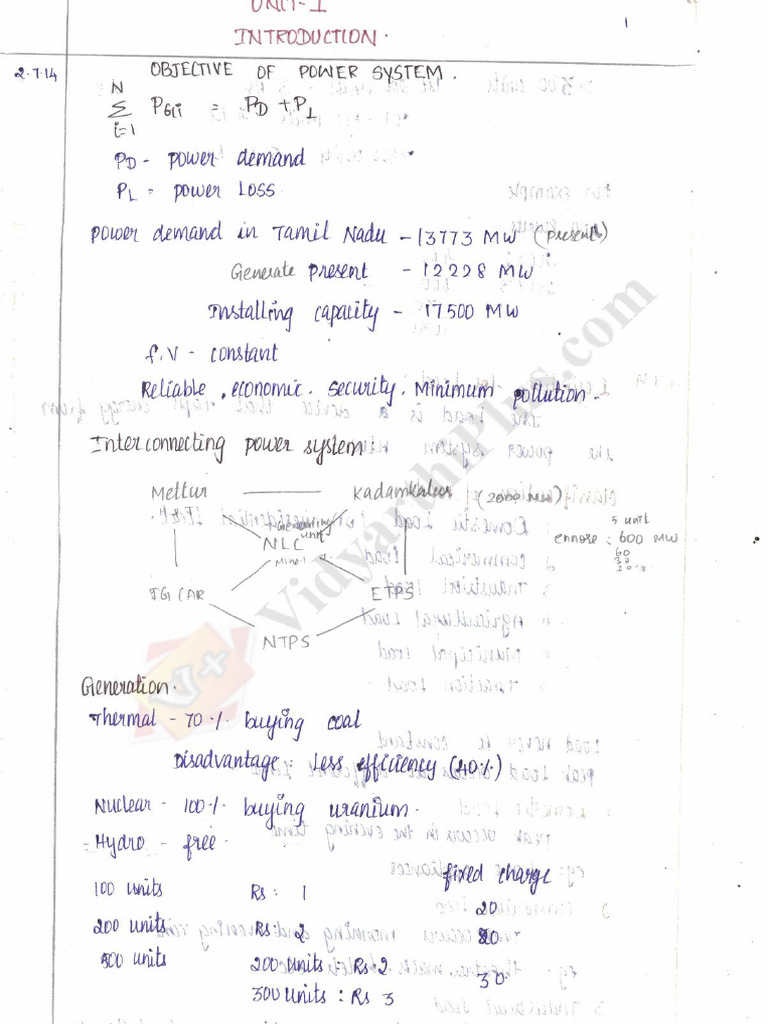 UNIT-I
INTRODUCTION.
1
2.7.14
OBJECTIVE OF POWER SYSTEM.
N
Σ PGi = PD + PL
i=1
PD - power demand
PL = power Loss
Power demand in Tamil Nadu - 13773 MW (present)
Generate present - 12228 MW
Installing capacity - 17500 MW
f.V - constant
Reliable, economic. security. Minimum pollution.
Interconnecting power system
Mettur
(2000 MW)
5 unit
ennore: 600 MW
60
30
generating unit
NLC
ETPS
NTPS
Generation.
Thermal - 70.1. buying coal
Disadvantage: Less efficiency (40%)
Nuclear - 100.1. buying uranium.
= Hydro - free.
fixed charge
100 units Rs: 1
20
200 units Rs: 2
500 units 200 units: Rs. 2
30.
300 units: Rs 3
VidyarthiPlus.com
V+